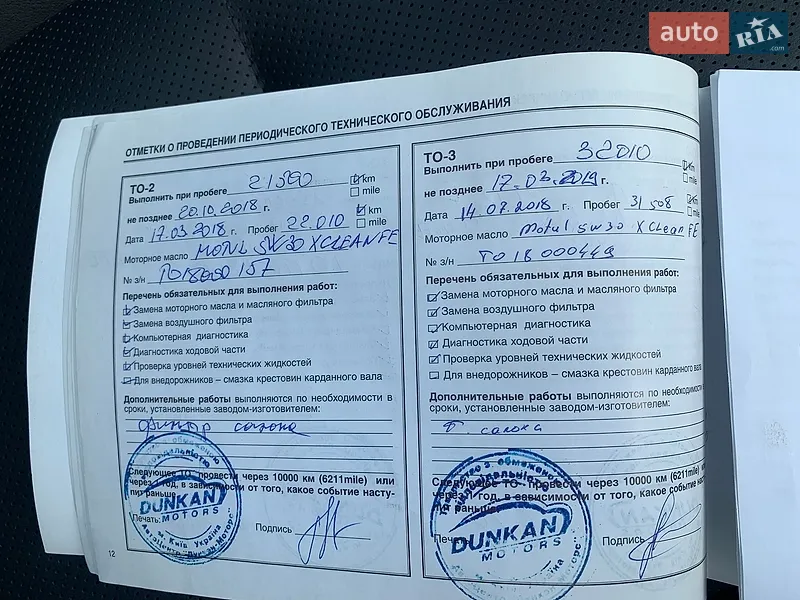 auto RIA .com
ОТМЕТКИ О ПРОВЕДЕНИИ ПЕРИОДИЧЕСКОГО ТЕХНИЧЕСКОГО ОБСЛУЖИВАНИЯ
ТО-2
Выполнить при пробеге km
mile
не позднее 20.10.2018 г. km
Дата 17.03.2018 г. Пробег 22.010 mile
Моторное масло MOTUL 5W30 XCLEAN FE
№ з/н
Перечень обязательных для выполнения работ:
Замена моторного масла и масляного фильтра
Замена воздушного фильтра
Компьютерная диагностика
Диагностика ходовой части
Проверка уровней технических жидкостей
Для внедорожников – смазка крестовин карданного вала
Дополнительные работы выполняются по необходимости в
сроки, установленные заводом-изготовителем:
Фильтр салона
Следующее ТО провести через 10000 км (6211mile) или
через год, в зависимости от того, какое событие насту-
пит раньше.
Печать:
DUNKAN
MOTORS
м. Київ Україна
Подпись
12
ТО-3
Выполнить при пробеге 32010 km
mile
не позднее 17.03.2019 г. km
Дата 14.07.2018 г. Пробег 31508 mile
Моторное масло Motul 5w30 XClean FE
№ з/н ТО 18 000449
Перечень обязательных для выполнения работ:
Замена моторного масла и масляного фильтра
Замена воздушного фильтра
Компьютерная диагностика
Диагностика ходовой части
Проверка уровней технических жидкостей
Для внедорожников – смазка крестовин карданного вала
Дополнительные работы выполняются по необходимости в
сроки, установленные заводом-изготовителем:
Ф. салона
Следующее ТО провести через 10000 км (6211mile) или
через год, в зависимости от того, какое событие насту-
пит раньше.
DUNKAN
MOTORS
Подпись